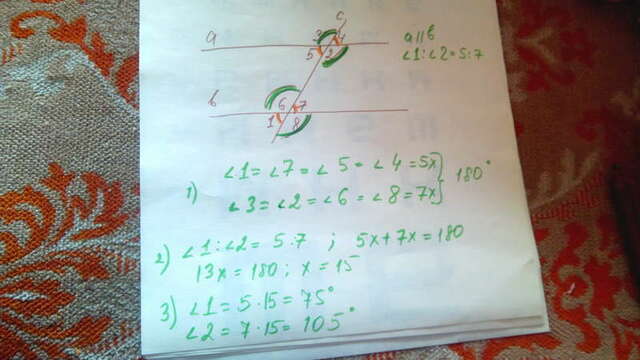 c
a 3 4 a||b
5 2 ∠1:∠2=5:7
b 6 7
1 8
1) ∠1=∠7=∠5=∠4=5x] 180°
∠3=∠2=∠6=∠8=7x]
2) ∠1:∠2=5:7 ; 5x+7x=180
13x=180; x=15
3) ∠1=5·15=75°
∠2=7·15=105°